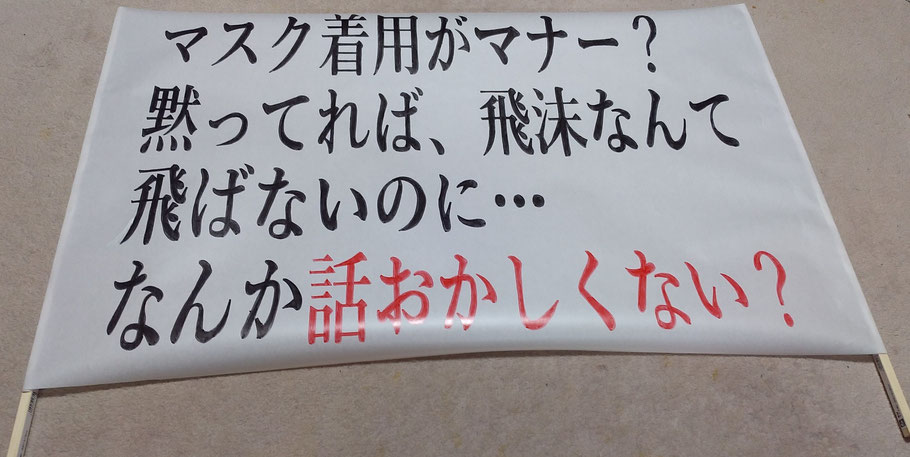 マスク着用がマナー？
黙ってれば、飛沫なんて
飛ばないのに…
なんか話おかしくない？